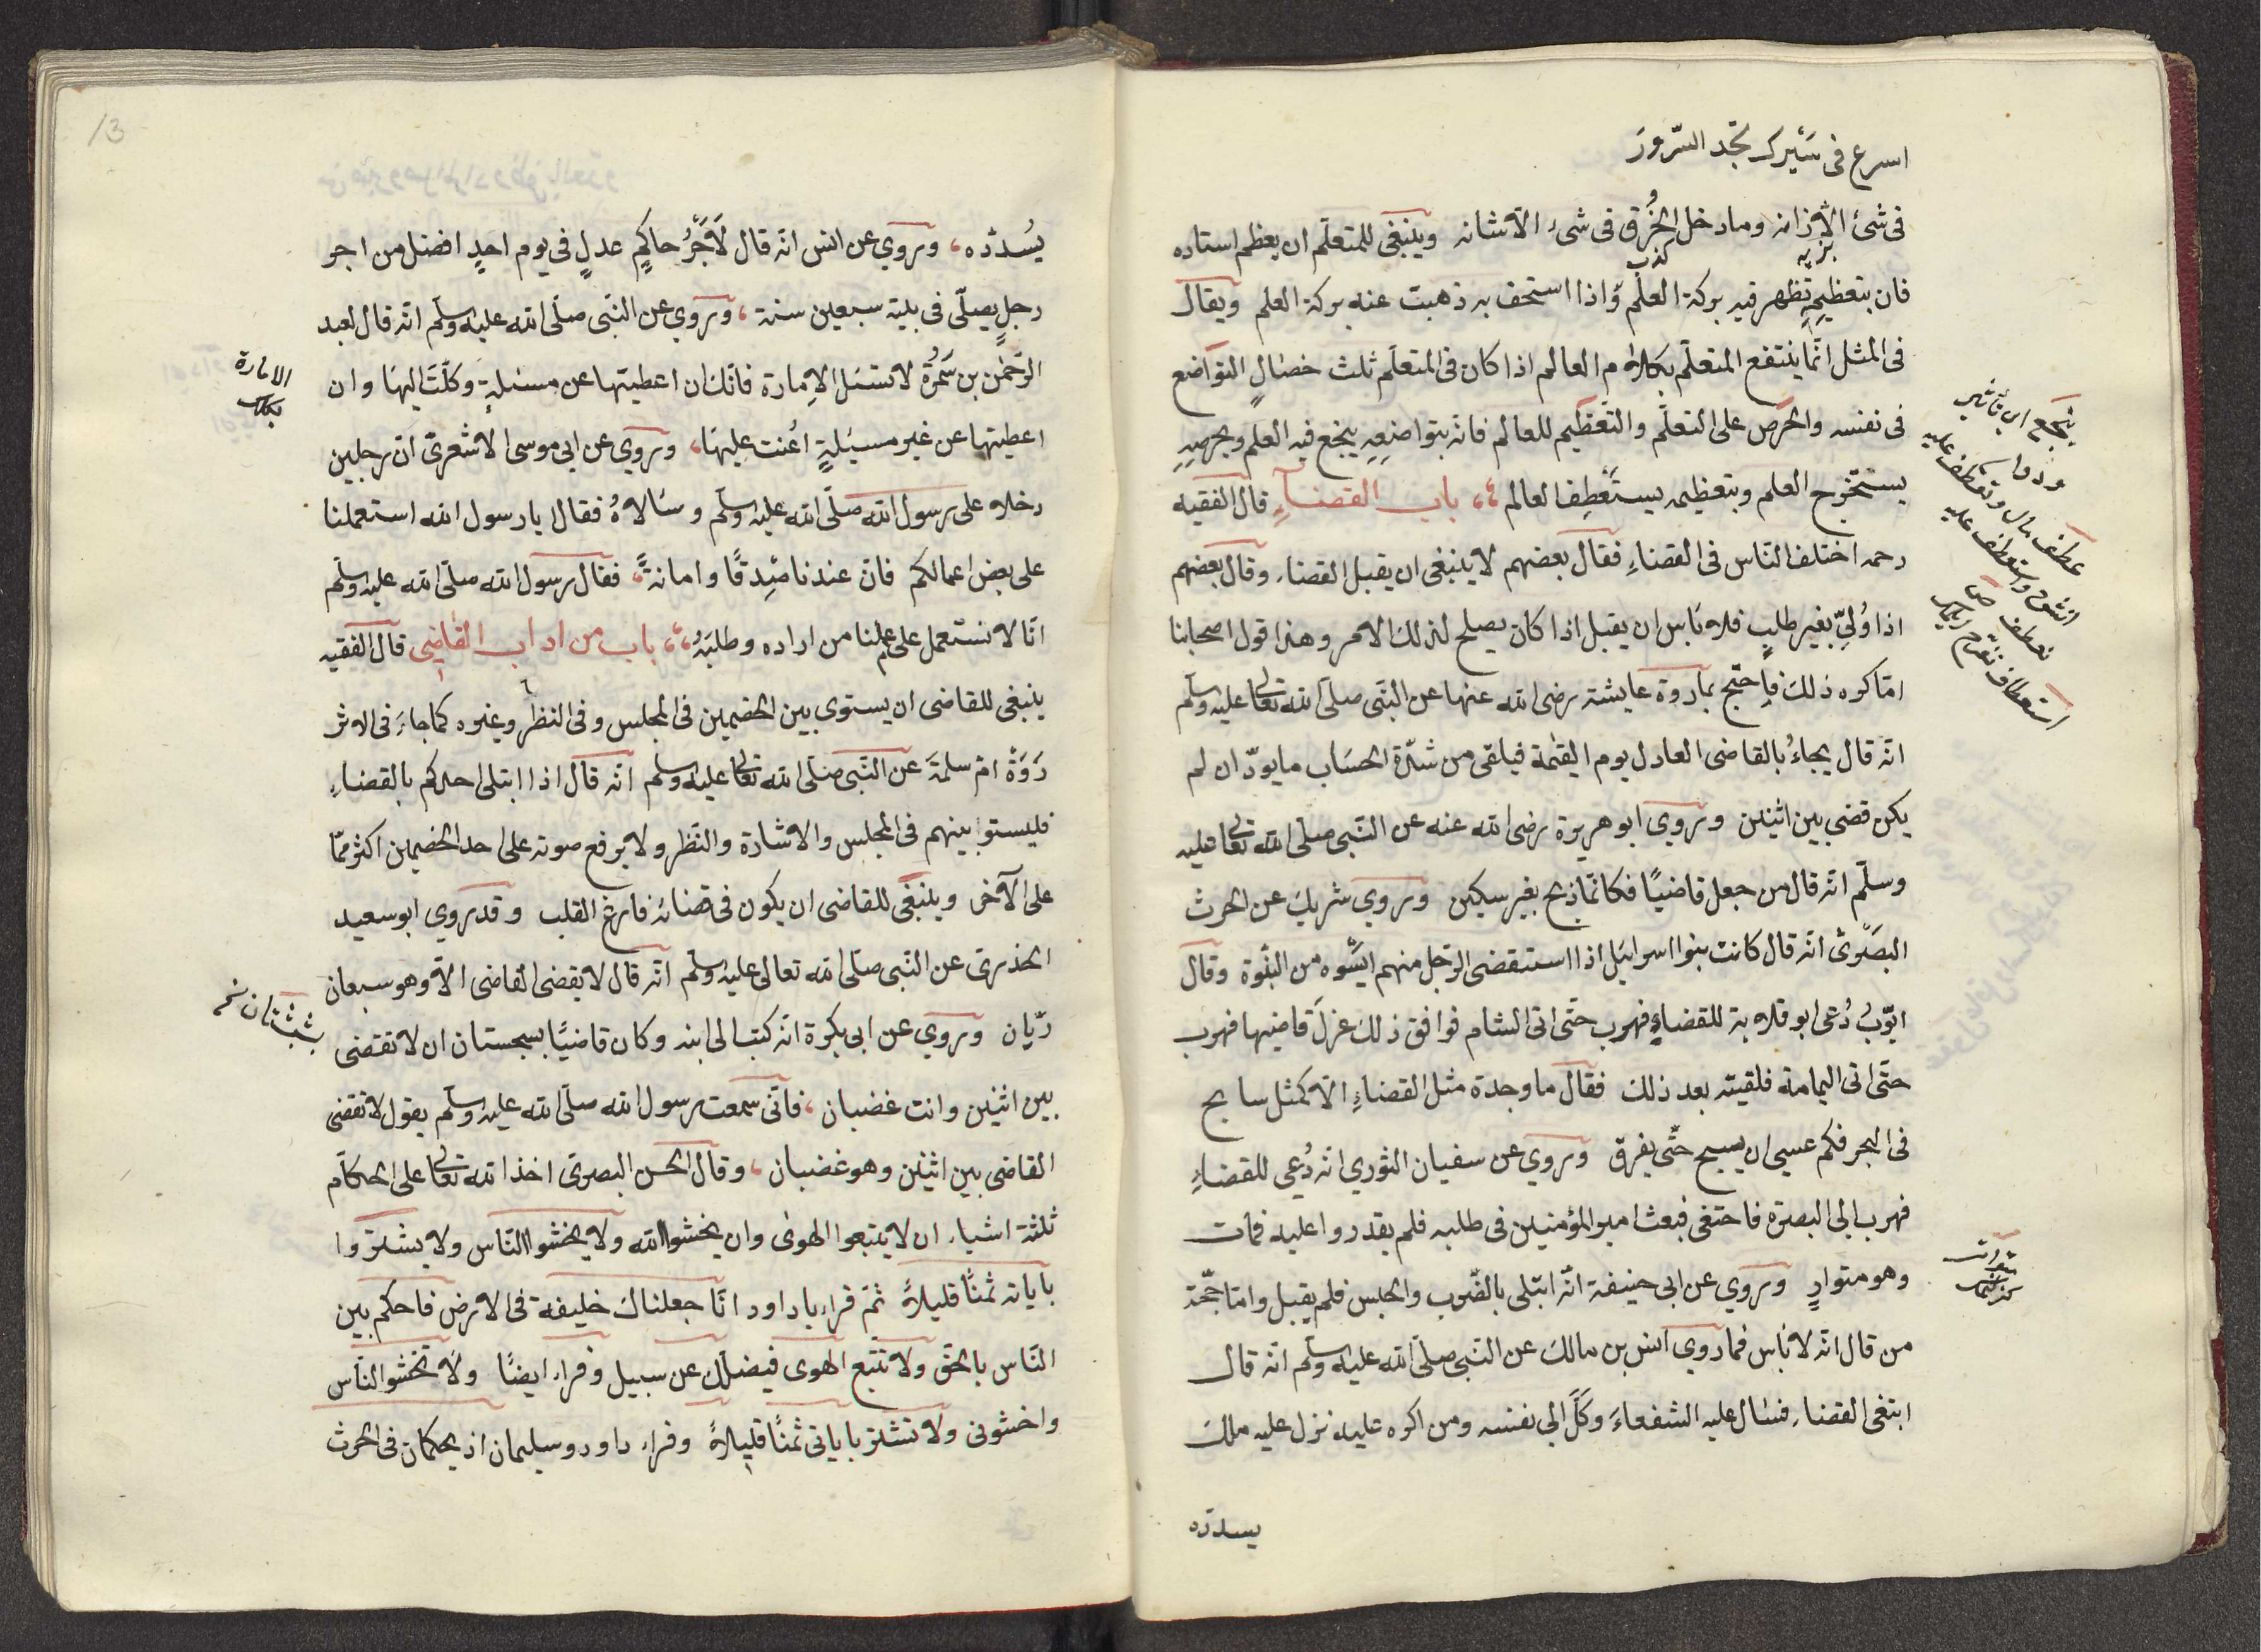 اسرع فى سَيْرك تجد السّرورَ
فى شئ الّا زانه وما دخل الخُرق فى شئ الّا شانه وينبغى للمتعلّم ان يعظم استاده
فان بتعظيمِهِ تظهر فيه بركة العلم واذا استخف به ذهبت عنه بركة العلم ويقال
فى المثل انّما ينتفع المتعلّم بكلام العالم اذا كان فى المتعلّم ثلث خصالٍ التواضع
فى نفسه والحرص على التعلّم والتّعظيم للعالم فانّه بتواضعِهِ ينجع فيه العلم وبحرصِهِ
يستخرج العلم وبتعظيمه يستَعْطِف العالم باب القضآءِ قال الفقيه
رحمه اختلف النّاس فى القضاءِ فقال بعضهم لا ينبغى ان يقبل القضاء وقال بعضهم
اذا وُلِّيَ بغير طلبٍ فلا بَأس ان يقبل اذا كان يصلح لذلك الامر وهذا قول اصحابنا
امّا كره ذلك فاحتّج بما روة عايشة رضى الله عنها عن النّبى صلّى الله تعالى عليه وسلّم
انّه قال يجاءُ بالقاضى العادل يوم القيٰمة فيلقى من شدّة الحسَاب ما يودّ ان لم
يكن قضى بين اثنين وروي ابو هريرة رضى الله عنه عن النّبى صلّى الله تعالى عليه
وسلّم انّه قال من جعل قاضيًا فكانّما ذبح بغير سكين وروي شريك عن الحرث
البصَرىّ انّه قال كانت بنوا اسرايَل اذا استقضى الرّجل منهم ايَسُوه من النبّوة وقال
ايّوبُ دُعى ابو قلابة للقضاءِ فهرب حتّى اتى الشام فوافق ذلك عزلَ قاضيها فهرب
حتّى اتى اليمامة فلقيته بعد ذلك فقال ما وجدة مثل القضاءِ الّا كمثل سابح
فى البحر فكم عسى ان يسبح حتّى يغرق وروي عن سفيان الثورى انّه دُعى للقضاءِ
فهرب الى البصرة فاختفى فبعث امير المؤمنين فى طلبه فلم يقدروا عليه فمات
وهو متوارٍ وروي عن ابى حنيفة انّه ابتلى بالضّرب والحبس فلم يقبل وامّا حجّة
من قال انّه لا بأس فما روي انس بن مالك عن النّبى صلّى الله عليه وسلّم انّه قال
ابتغى القضاء فسال عليه الشفعاءَ وَكَلَ الى نفسه ومن اكره عليه نزل عليه ملك
يسدّده
يُسدّده، وروي عن انس انّه قال لَاَجْرُ حاكمٍ عدلٍ فى يوم احدٍ افضل من اجر
رجلٍ يصلّى فى بيته سبعين سنة، وروي عن النّبى صلّى الله عليه وسلّم انّه قال لعبد
الرّحمٰن بن سَمُرَة لا تسئل الاِمارة فانّك ان اعطيتها عن مسئلةٍ وكلّتَ اليهَا وان
الامارة
بكلك
اعطيتها عن غير مسئلةٍ اُعنت عليهَا، وروي عن ابى موسى الاشعرىّ انّ رجلين
دخلا على رسول الله صلّى الله عليه وسلّم وسَالاهُ فقال يا رسول الله استعملنا
على بعض اعمالكم فانّ عندنا صِدقًا وامانةً، فقال رسول الله صلّى الله عليه وسلّم
انّا لا نستعمل على عملنا من اراده وطلبَهُ، باب من اداب القاضى قال الفقيه
ينبغى للقاضى ان يستوى بين الخصمين فى المجلس وفى النظر وغيره كما جاءَ فى الاثر
رَوَةْ امّ سلمةَ عن النّبى صلّى الله تعالى عليه وسلّم انّه قال اذا ابتلى احدكم بالقضاءِ
فليستو بينهم فى المجلس والاشادة والنّظر ولا يرفع صوته على احد الخصمين اكثر ممّا
على الآخر وينبغى للقاضى ان يكون فى قضائه فارغ القلب وقد روي ابو سعيد
الخدرى عن النّبى صلّى الله تعالى عليه وسلّم انّه قال لا يقضى القاضى الّا وهو سبعان
ريّان وروي عن ابى بكرة انّه كتب الى ابنه وكان قاضيًا بسجستان ان لا تقضى
بين اثنين وانت غضبان، فانّى سمعت رسول الله صلّى الله عليه وسلّم يقول لا تقضى
القاضى بين اثنين وهو غضبان، وقال الحسن البصرىّ اخذ الله تعالى على الحكّام
ثلثة اشياء ان لا يتبعوا الهوىٰ وان يخشوا الله ولا يخشوا النّاس ولا يشتروا
باياته ثمنًا قليلاً ثمّ قراء يا داود انّا جعلناك خليفة فى الارض فاحكم بين
النّاس بالحقّ ولا تتبع الهوى فيضلّك عن سبيل وقراء ايضًا ولا تخشو النّاس
واخشونى ولا تشتر باياتى ثمنًا قليلاً وقراء داود وسليمان اذ يحكمان فى الحرث